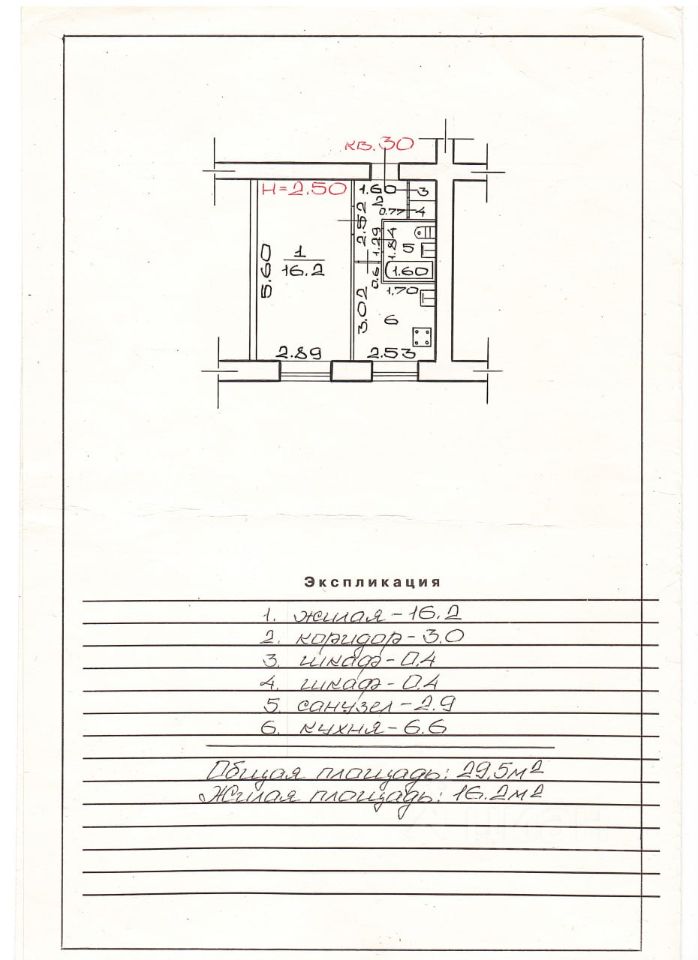 кв. 30
H=2.50
1.60
3
2
0.77
4
2.52
1.29
1.84
5
1
16.2
5.60
0.6
1.60
1.70
3.02
6
2.89
2.53
Экспликация
1. жилая - 16.2
2. коридор - 3.0
3. шкаф - 0.4
4. шкаф - 0.4
5. санузел - 2.9
6. кухня - 6.6
Общая площадь: 29,5м2
Жилая площадь: 16.2м2